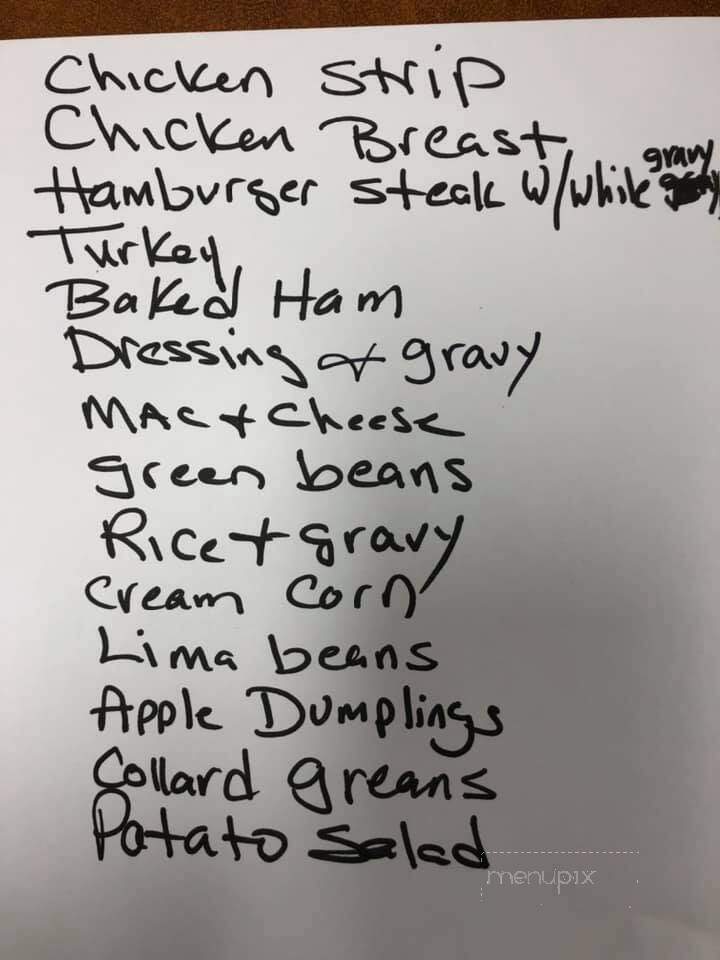 Chicken Strip
Chicken Breast
Hamburger Steak w/while gravy
Turkey
Baked Ham
Dressing + gravy
MAC + Cheese
green beans
Rice + gravy
Cream Corn
Lima beans
Apple Dumplings
Collard greans
Potato Salad
menupix